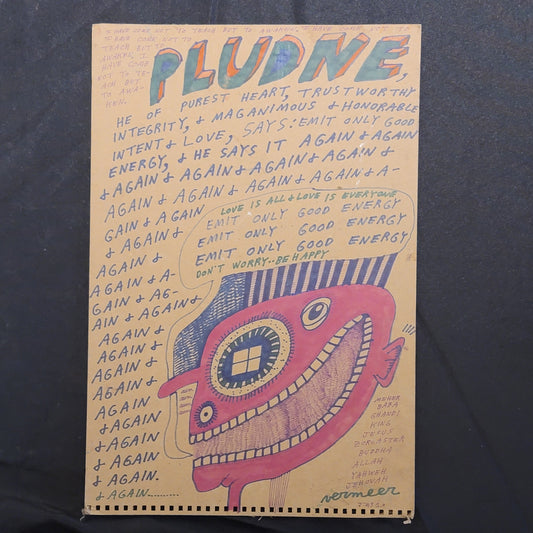 I HAVE COME NOT TO TEACH BUT TO AWAKEN, I HAVE COME NOT TO
TEACH BUT TO
AWAKEN, I
HAVE COME
NOT TO TE-
ACH BUT
TO AWA-
KEN.
PLUDNE,
HE OF PUREST HEART, TRUSTWORTHY
INTEGRITY, & MAGANIMOUS & HONORABLE
INTENT & LOVE, SAYS: EMIT ONLY GOOD
ENERGY, & HE SAYS IT AGAIN & AGAIN
& AGAIN & AGAIN & AGAIN & AGAIN &
AGAIN & AGAIN & AGAIN & AGAIN & A-
GAIN & AGAIN
& AGAIN &
AGAIN &
AGAIN & A-
GAIN & AG-
AIN & AGAIN &
AGAIN &
AGAIN &
AGAIN &
AGAIN &
AGAIN
& AGAIN
& AGAIN
& AGAIN
& AGAIN.
& AGAIN..........
LOVE IS ALL & LOVE IS EVERYONE
EMIT ONLY GOOD ENERGY
EMIT ONLY GOOD ENERGY
EMIT ONLY GOOD ENERGY
DON'T WORRY--BE HAPPY
MEHER
BABA
GHANDI
KING
JESUS
ZOROASTER
BUDDHA
ALLAH
YAHWEH
JEHOVAH
vermeer